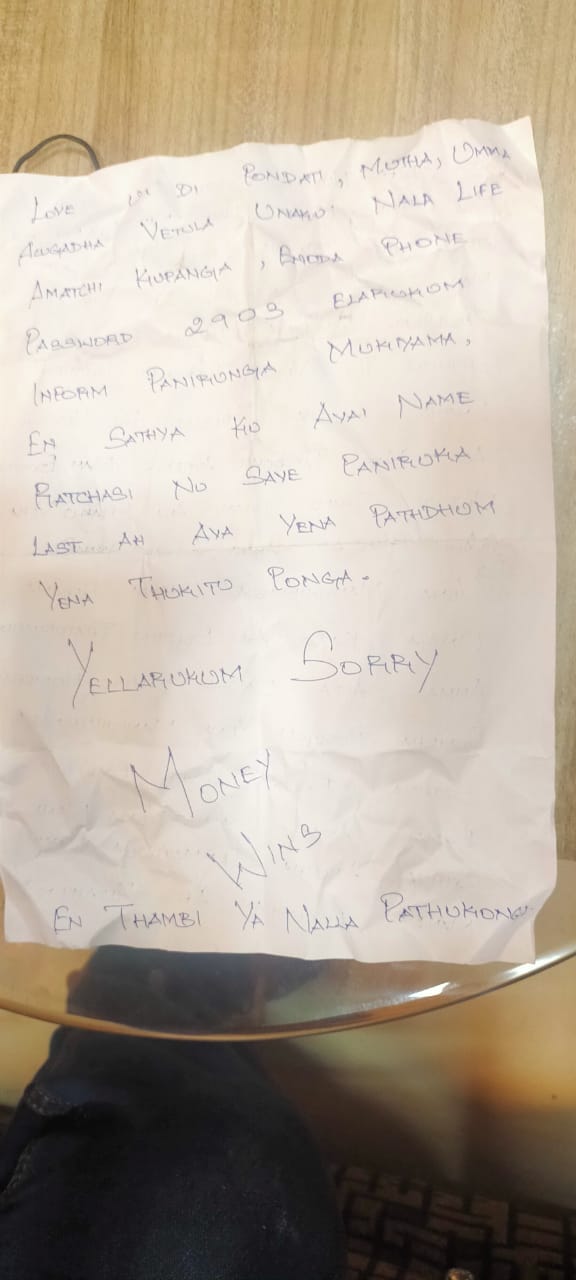 LOVE U DI PONDATI, MUTHA, UMMA
AZUGADHA VETULA UNAKU NALA LIFE
AMATCHI KUPANGA, ENODA PHONE
PASSWORD 2903 ELARUKUM
INFORM PANIRUNGA MUKIYAMA,
EN SATHYA KU AVAI NAME
RATCHASI NU SAVE PANIRUKA
LAST AH AVA YENA PATHDHUM
YENA THUKITU PONGA.
YELLARUKUM SORRY
MONEY
WINS
EN THAMBI YA NALLA PATHUKONGA